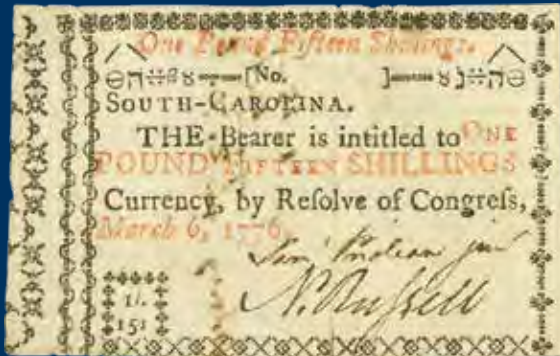 One Pound Fifteen Shillings.
[No. ]
SOUTH-CAROLINA.
THE Bearer is intitled to ONE
POUND FIFTEEN SHILLINGS
Currency, by Reſolve of Congreſs,
March 6, 1776.
N. Ruſsell
1l.
15s